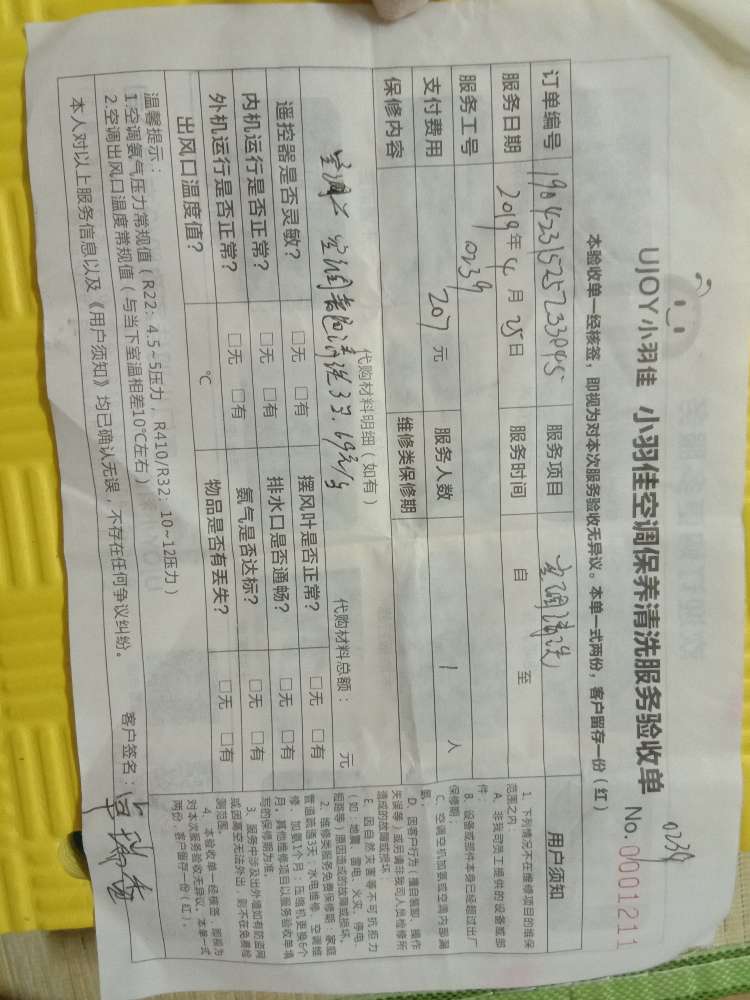 UJOY小羽佳 小羽佳空调保养清洗服务验收单
0239
No. 0001211
本验收单一经核签，即视为对本次服务验收无异议。本单一式两份，客户留存一份（红）
订单编号 服务项目 空调清洗
服务日期 2019年4月25日 服务时间 自 至
服务工号 0239
支付费用 207元 服务人数 1 人
保修内容 维修类保修期
代购材料明细（如有） 代购材料总额： 元
遥控器是否灵敏？ □无 □有 摆风叶是否正常？ □无 □有
内机运行是否正常？ □无 □有 排水口是否通畅？ □无 □有
外机运行是否正常？ □无 □有 氨气是否达标？ □无 □有
出风口温度值？ ℃ 物品是否有丢失？ □无 □有
温馨提示：
1.空调氨气压力常规值（R22：4.5~5压力，R410/R32：10~12压力）
2.空调出风口温度常规值（与当下室温相差10℃左右）
本人对以上服务信息以及《用户须知》均已确认无误，不存在任何争议纠纷。 客户签名：
用户须知
1、下列情况不在维修项目的维保
范围之内：
A、非我司员工提供的设备或部
件；
B、设备或部件本身已经超过出厂
保修期；
C、空调空机加氨或空调内部漏
氨；
D、因客户行为（擅自装卸、操作
失误等）或已请非我司人员检修所
造成的故障或损坏；
E、因自然灾害等不可抗拒力
（如：地震、雷电、火灾、停电、
超路等）原因造成的故障或损坏。
2、维修类服务免费保修期：家庭
管道疏通3天，水电维修、空调维
修、加氨1个月，压缩机更换6个
月，其他维修项目以服务验收单填
写的保修期为准。
3、服务中涉及出外墙如有防盗网
或因高空无法外出，则不在免费检
测范围。
4、本验收单一经核签，即视为
对本次服务验收无异议。本单一式
两份，客户留存一份（红）。